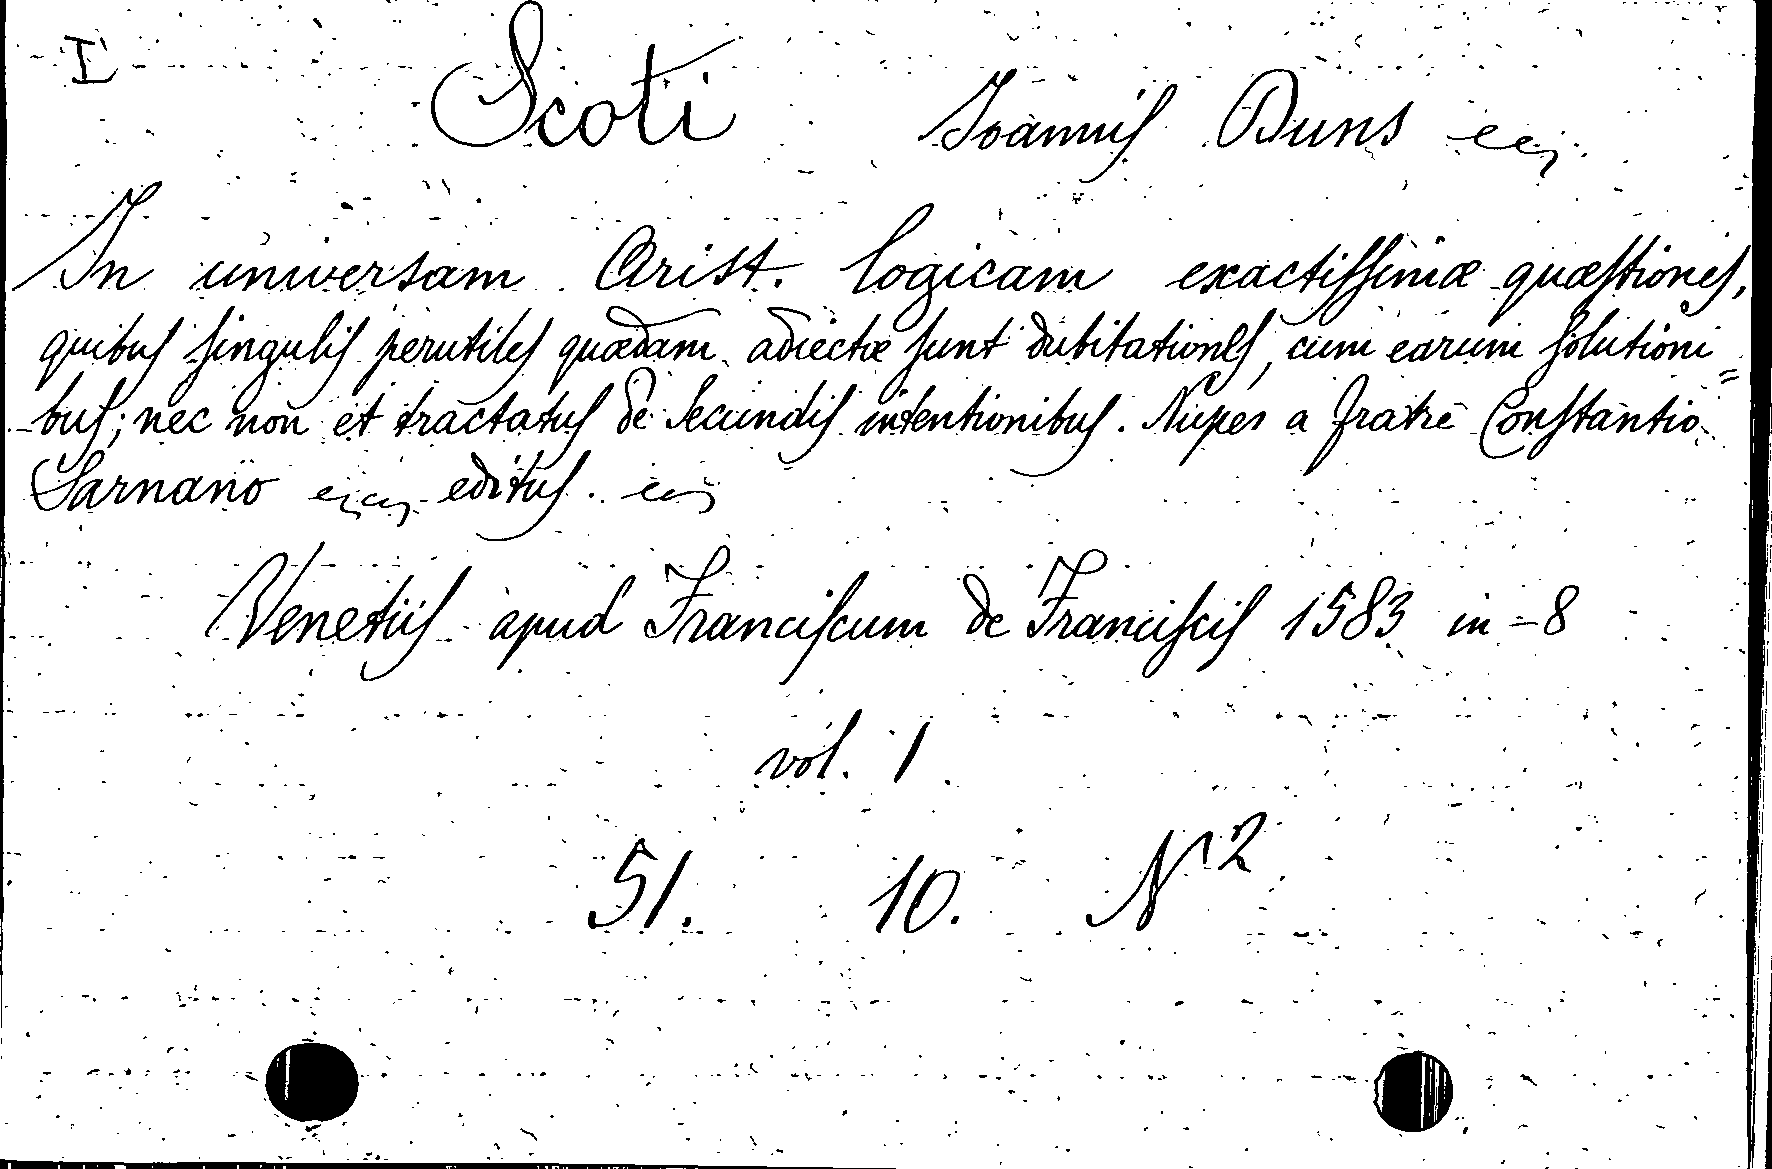 I
Scoti Ioannis Duns
In universam Arist. logicam exactissimæ quæstiones,
quibus singulis perutiles quædam adiectæ sunt dubitationes, cum earum solutioni=
bus; nec non et tractatus de secundis intentionibus. Nuper a fratre Constantio
Sarnano editus.
Venetiis apud Franciscum de Franciscis 1583 in-8
vol. 1
51. 10. N 2